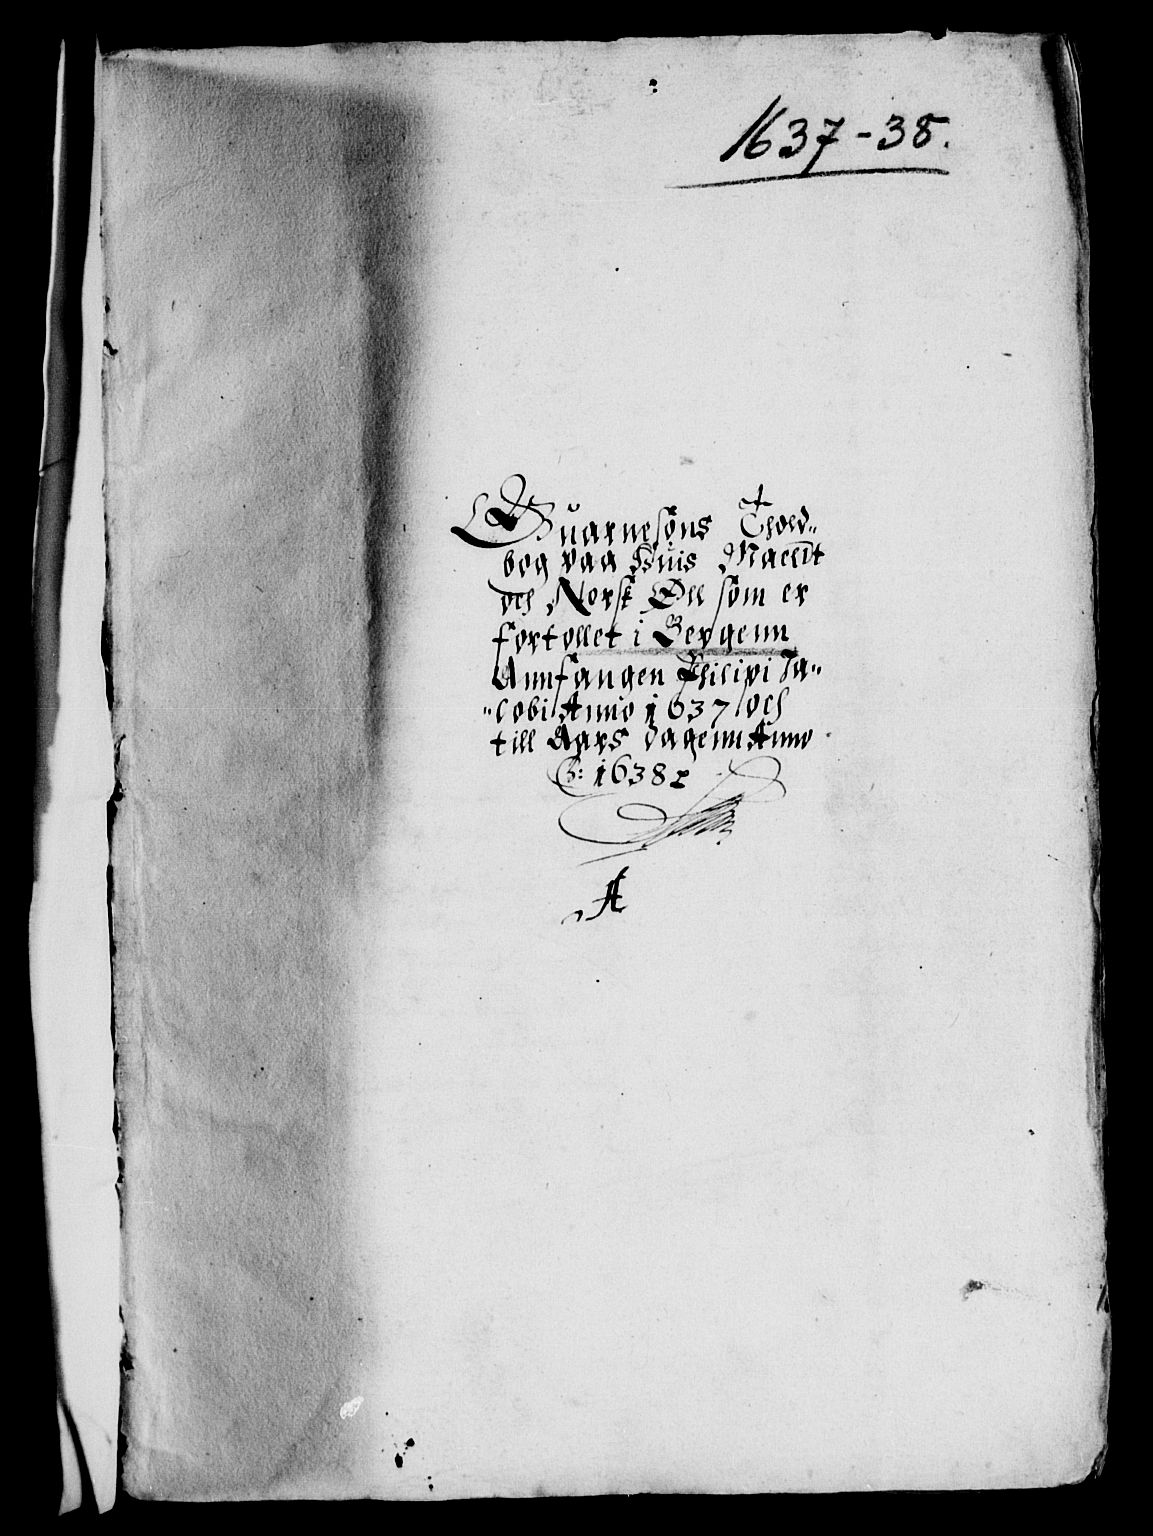 1637-38.
Guarnesøns Thold-
bog paa Huis Maelt
och Norsk Øll som er
fortollet i Bergenn
Annfangen Philipi Ja-
-cobi Anno 1637 och
till Aars dagenn Anno
1638
A